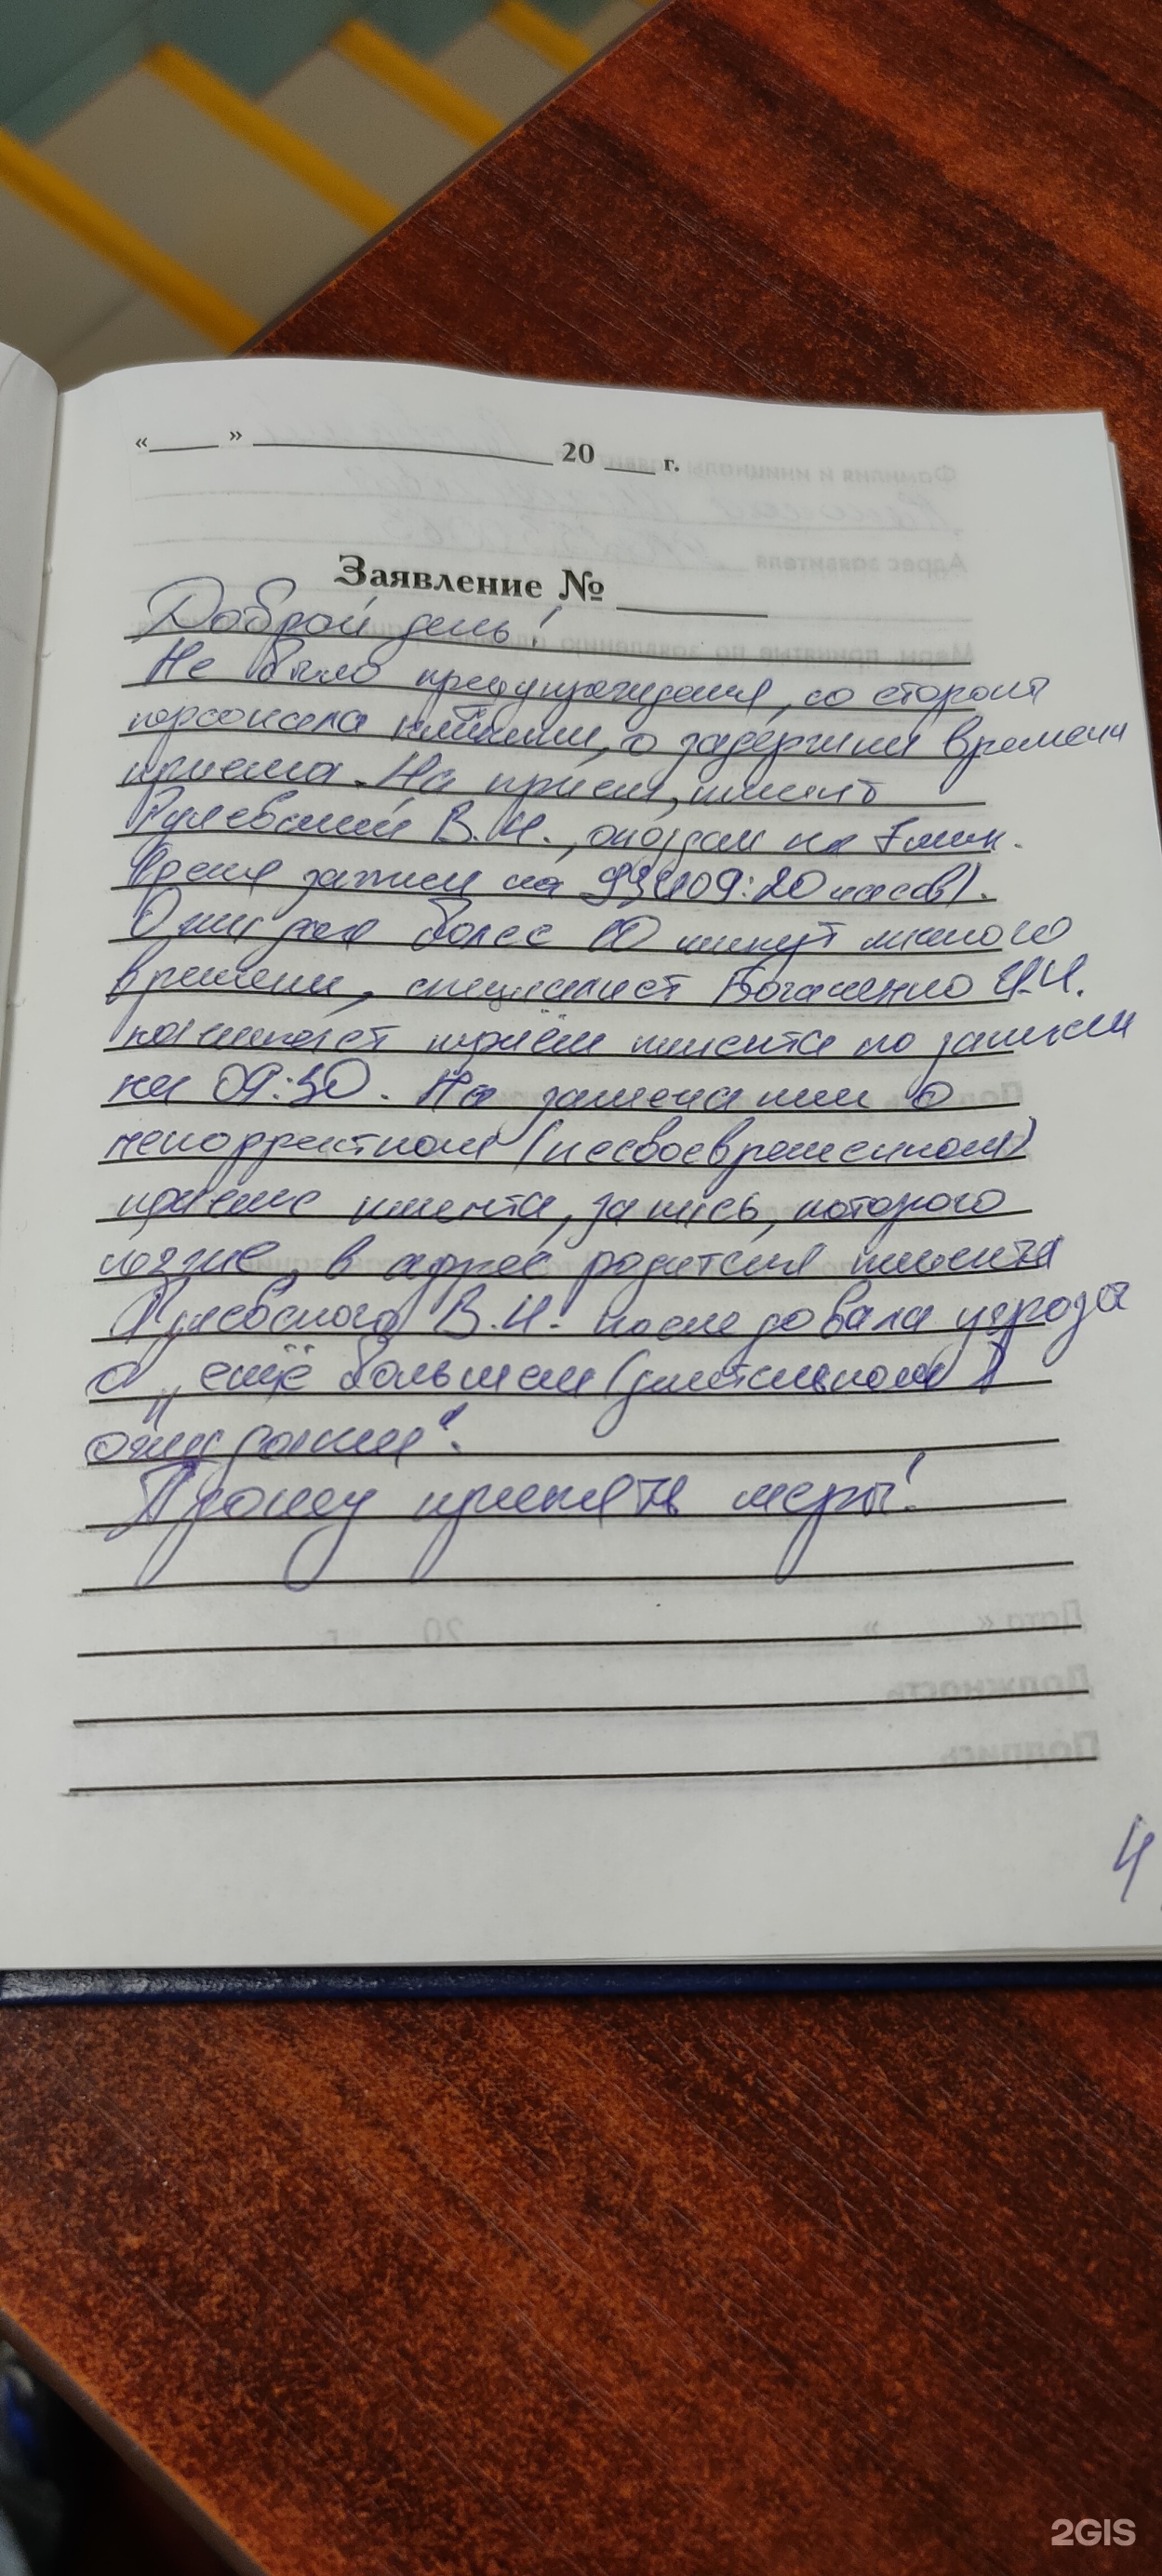 « » 20 г.
Заявление №
Добрый день!
Не было предупреждения, со стороны
персонала клиники, о задержки времени
приема. На прием, клиент
В.И., опоздал на 7 мин.
Время записи на 09:20 часов).
Ожидая более 10 минут личного
времени, специалист Богаченко И.И.
начинает приём клиента по записи
на 09:30. На замечание о
некорректном (несвоевременном)
приеме клиента, запись, которого
позже, в адрес родителя клиента
В.И. последовала угроза
о „ещё большем (длительном)
ожидании“.
Прошу принять меры!
2GIS